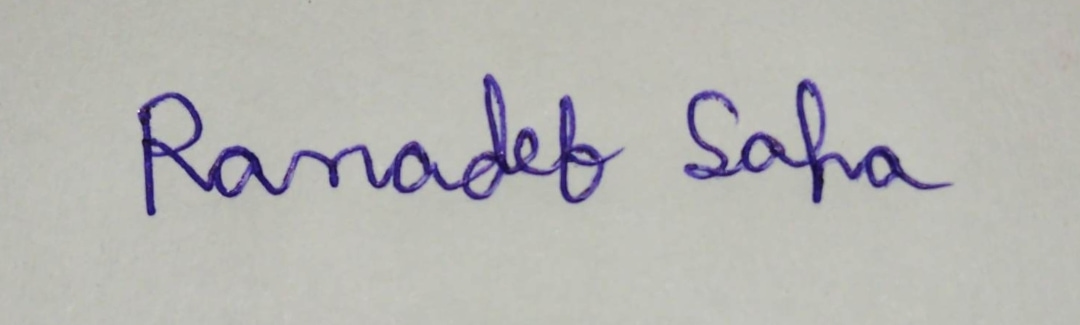 Ranadeb Saha